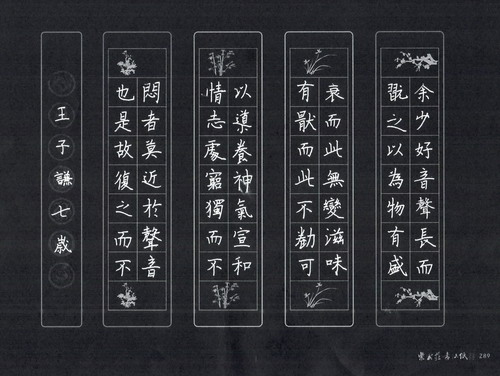 余少好音聲長而
翫之以為物有盛
衰而此無變滋味
有猒而此不勌可
以導養神氣宣和
情志處窮獨而不
悶者莫近於聲音
也是故復之而不
王子謙七歲
289